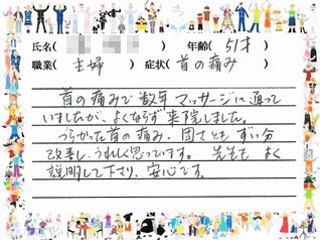 氏名( ) 年齢( 51才 )
職業( 主婦 ) 症状( 首の痛み )
首の痛みで数年マッサージに通って
いましたが、よくならず来院しました。
つらかった首の痛み、固さともずい分
改善し、うれしく思っています。 先生も よく
説明して下さり、安心です。